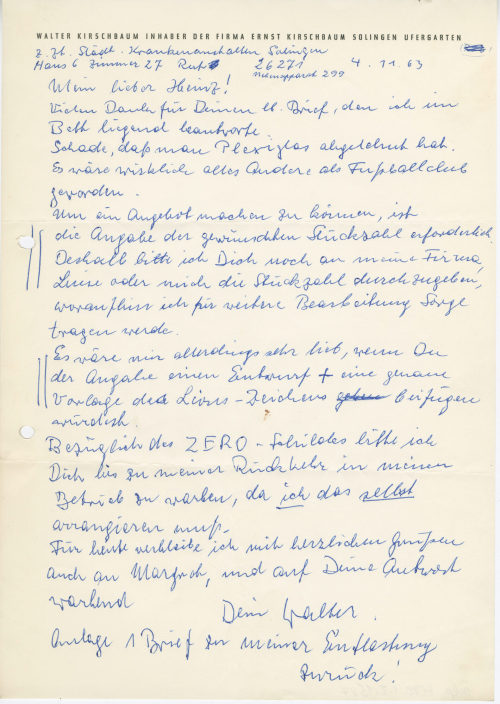 WALTER KIRSCHBAUM INHABER DER FIRMA ERNST KIRSCHBAUM SOLINGEN UFERGARTEN
z. Zt. Städt. Krankenanstalten Solingen
Haus 6 Zimmer 27 Ruf 26271 4.11.63
Nebenapparat 299
Mein lieber Heinz!
Vielen Dank für Deinen lb. Brief, den ich im
Bett liegend beantworte.
Schade, daß man Plexiglas abgelehnt hat.
Es wäre wirklich alles Andere als Fußballclub
geworden.
Um ein Angebot machen zu können, ist
die Angabe der gewünschten Stückzahl erforderlich.
Deshalb bitte ich Dich noch an meine Firma
Luise oder mich die Stückzahl durchzugeben,
woraufhin ich für weitere Bearbeitung Sorge
tragen werde.
Es wäre mir allerdings sehr lieb, wenn Du
der Angabe einen Entwurf + eine genaue
Vorlage des Lions-Zeichens beifügen
würdest.
Bezüglich des ZERO-Schildes bitte ich
Dich bis zu meiner Rückkehr in meinen
Betrieb zu warten, da ich das selbst
arrangieren muß.
Für heute verbleibe ich mit herzlichen Grüßen
auch an Margret, und auf Deine Antwort
wartend
Dein Walter.
Anlage 1 Brief zu meiner Entlastung
zurück!